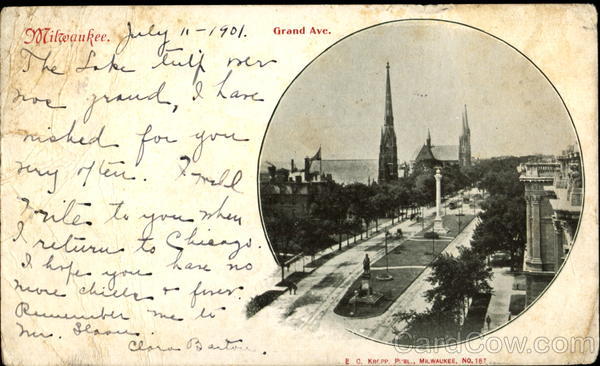 Milwaukee.
July 11-1901.
Grand Ave.
The Lake trip over
was grand, I have
wished for you
very often. I will
Write to you when
I return to Chicago.
I hope you have no
more chills & fever
Remember me to
Mr.
Clara Barton.
E. C. KROPP, PUBL., MILWAUKEE, NO.
CardCow.com